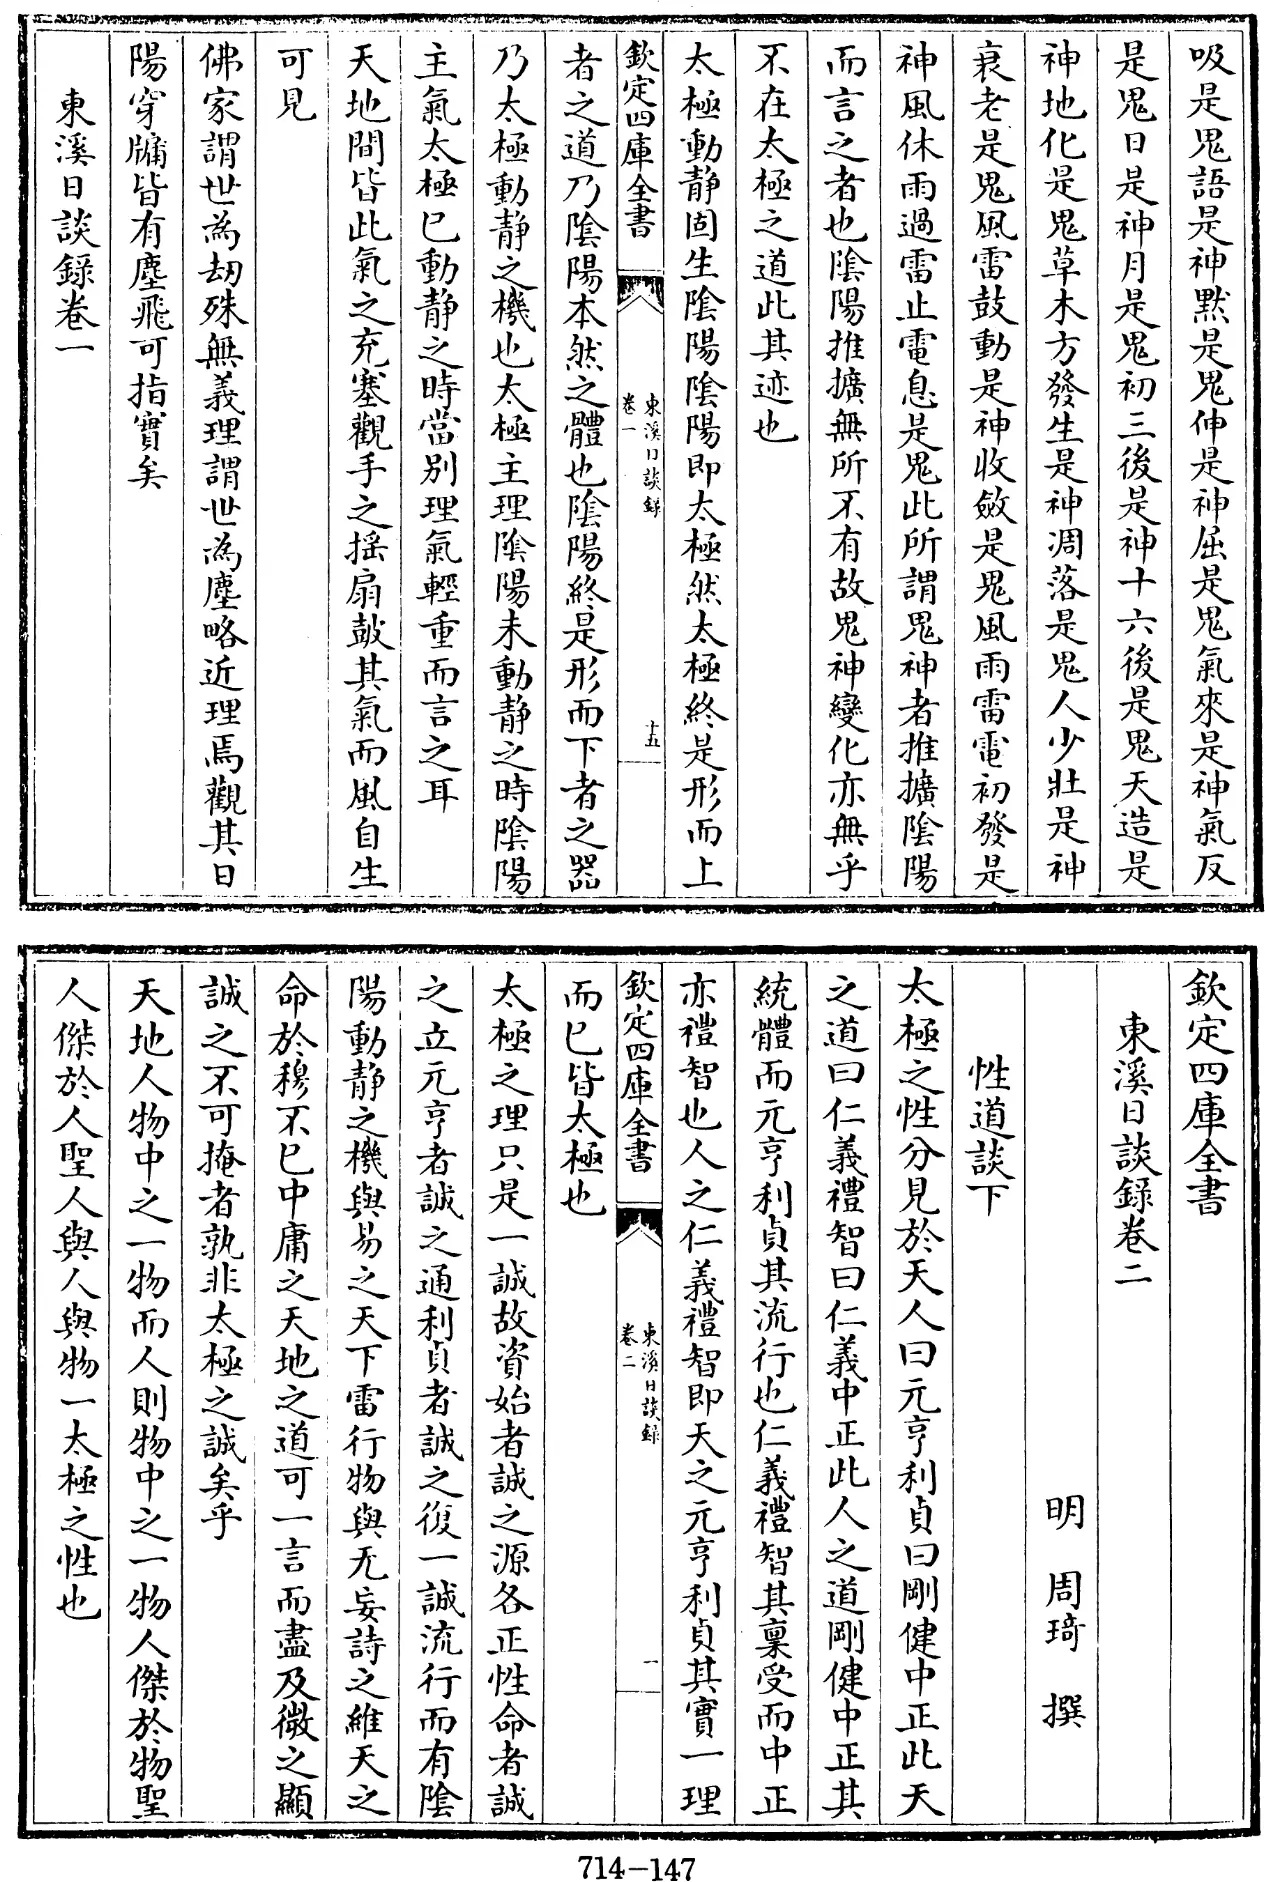 吸是鬼語是神黙是鬼伸是神屈是鬼氣來是神氣反
是鬼日是神月是鬼初三後是神十六後是鬼天造是
神地化是鬼草木方發生是神凋落是鬼人少壯是神
衰老是鬼風雷鼓動是神收斂是鬼風雨雷電初發是
神風休雨過雷止電息是鬼此所謂鬼神者推擴陰陽
而言之者也陰陽推擴無所不有故鬼神變化亦無乎
不在太極之道此其迹也
太極動靜固生陰陽陰陽即太極然太極終是形而上
欽定四庫全書
東溪日談録
卷一
十五
者之道乃陰陽本然之體也陰陽終是形而下者之器
乃太極動靜之機也太極主理陰陽未動靜之時陰陽
主氣太極已動靜之時當别理氣輕重而言之耳
天地間皆此氣之充塞觀手之揺扇鼓其氣而風自生
可見
佛家謂世為刼殊無義理謂世為塵略近理焉觀其日
陽穿牖皆有塵飛可指實矣
東溪日談録卷一
欽定四庫全書
東溪日談録卷二
明 周琦 撰
性道談下
太極之性分見於天人曰元亨利貞曰剛健中正此天
之道曰仁義禮智曰仁義中正此人之道剛健中正其
統體而元亨利貞其流行也仁義禮智其稟受而中正
亦禮智也人之仁義禮智即天之元亨利貞其實一理
欽定四庫全書
東溪日談録
卷二
一
而已皆太極也
太極之理只是一誠故資始者誠之源各正性命者誠
之立元亨者誠之通利貞者誠之復一誠流行而有陰
陽動靜之機與易之天下雷行物與无妄詩之維天之
命於穆不已中庸之天地之道可一言而盡及微之顯
誠之不可掩者孰非太極之誠矣乎
天地人物中之一物而人則物中之一物人傑於物聖
人傑於人聖人與人與物一太極之性也
714-147